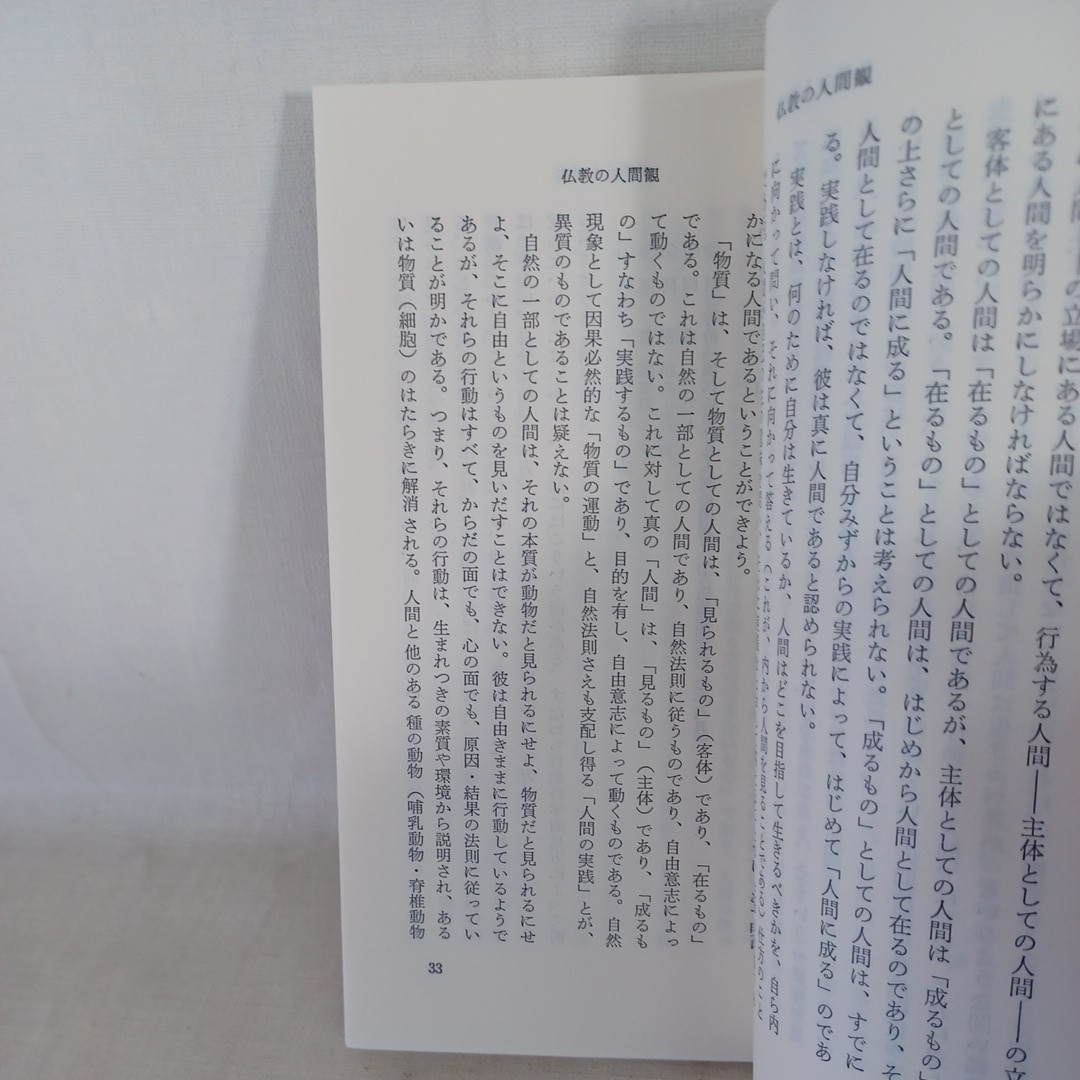 仏教の人間観
にある人間を明らかにしなければならない。
客体としての人間は「在るもの」としての人間であるが、主体としての人間は「成るもの」
としての人間である。「在るもの」としての人間は、はじめから人間として在るのであり、そ
の上さらに「人間に成る」ということは考えられない。「成るもの」としての人間は、すでに
人間として在るのではなくて、自分みずからの実践によって、はじめて「人間に成る」のであ
る。実践しなければ、彼は真に人間であると認められない。
実践とは、何のために自分は生きているか、人間はどこを目指して生きるべきかを、自ら内
に向かって問い、それに向かって答える（これが、内から人間を見ることである）
仏教の人間観
かになる人間であるということができよう。
「物質」は、そして物質としての人間は、「見られるもの」（客体）であり、「在るもの」
である。これは自然の一部としての人間であり、自然法則に従うものであり、自由意志によっ
て動くものではない。これに対して真の「人間」は、「見るもの」（主体）であり、「成るも
の」すなわち「実践するもの」であり、目的を有し、自由意志によって動くものである。自然
現象として因果必然的な「物質の運動」と、自然法則さえも支配し得る「人間の実践」とが、
異質のものであることは疑えない。
自然の一部としての人間は、それの本質が動物だと見られるにせよ、物質だと見られるにせ
よ、そこに自由というものを見いだすことはできない。彼は自由きままに行動しているようで
あるが、それらの行動はすべて、からだの面でも、心の面でも、原因・結果の法則に従ってい
ることが明かである。つまり、それらの行動は、生まれつきの素質や環境から説明され、ある
いは物質（細胞）のはたらきに解消される。人間と他のある種の動物（哺乳動物・脊椎動物
33